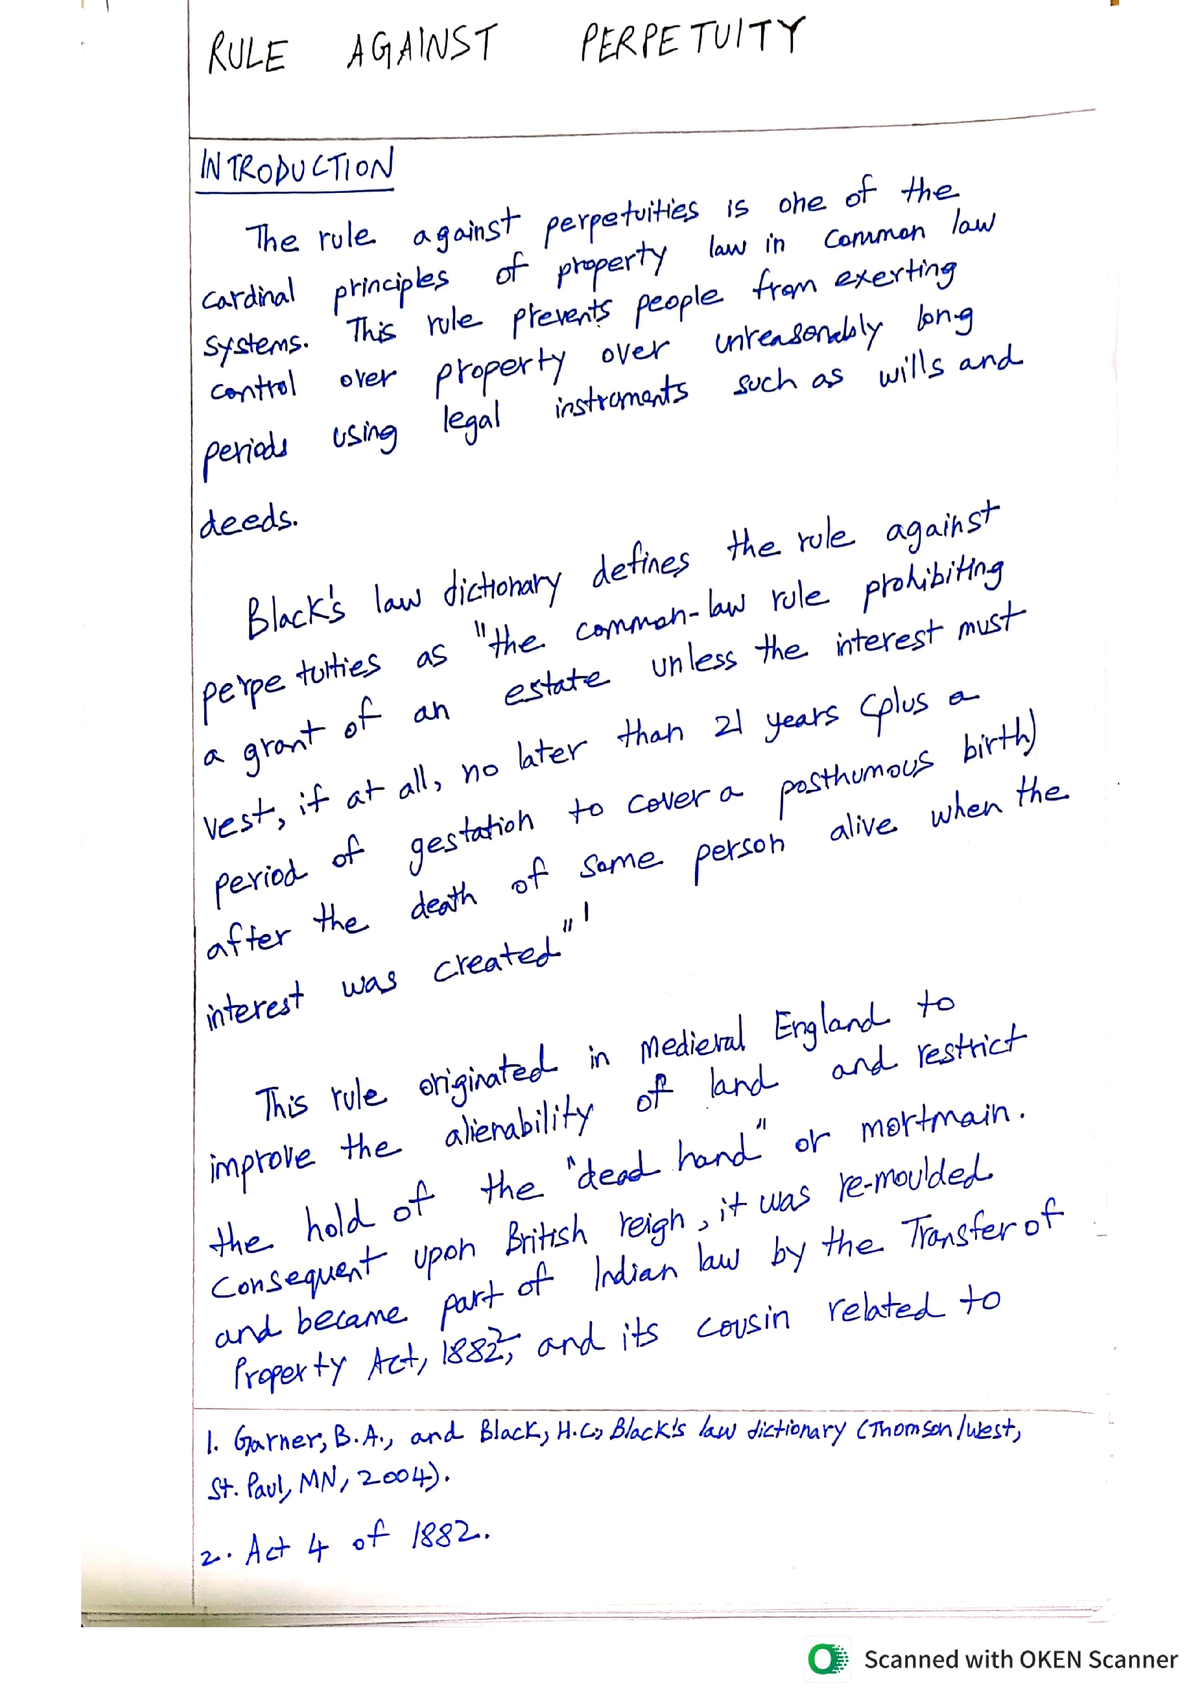 RULE AGAINST PERPETUITY
INTRODUCTION
The rule against perpetuities is one of the
cardinal principles of property law in common law
systems. This rule prevents people from exerting
control over property over unreasonably long
periods using legal instruments such as wills and
deeds.
Black's law dictionary defines the rule against
perpetuities as "the common-law rule prohibiting
a grant of an estate unless the interest must
vest, if at all, no later than 21 years (plus a
period of gestation to cover a posthumous birth)
after the death of some person alive when the
interest was created"1
This rule originated in Medieval England to
improve the alienability of land and restrict
the hold of the "dead hand" or mortmain.
Consequent upon British reign, it was re-moulded
and became part of Indian law by the Transfer of
Property Act, 1882,2 and its cousin related to
1. Garner, B.A., and Black, H.C., Black's law dictionary (Thomson/West,
St. Paul, MN, 2004).
2. Act 4 of 1882.
Scanned with OKEN Scanner